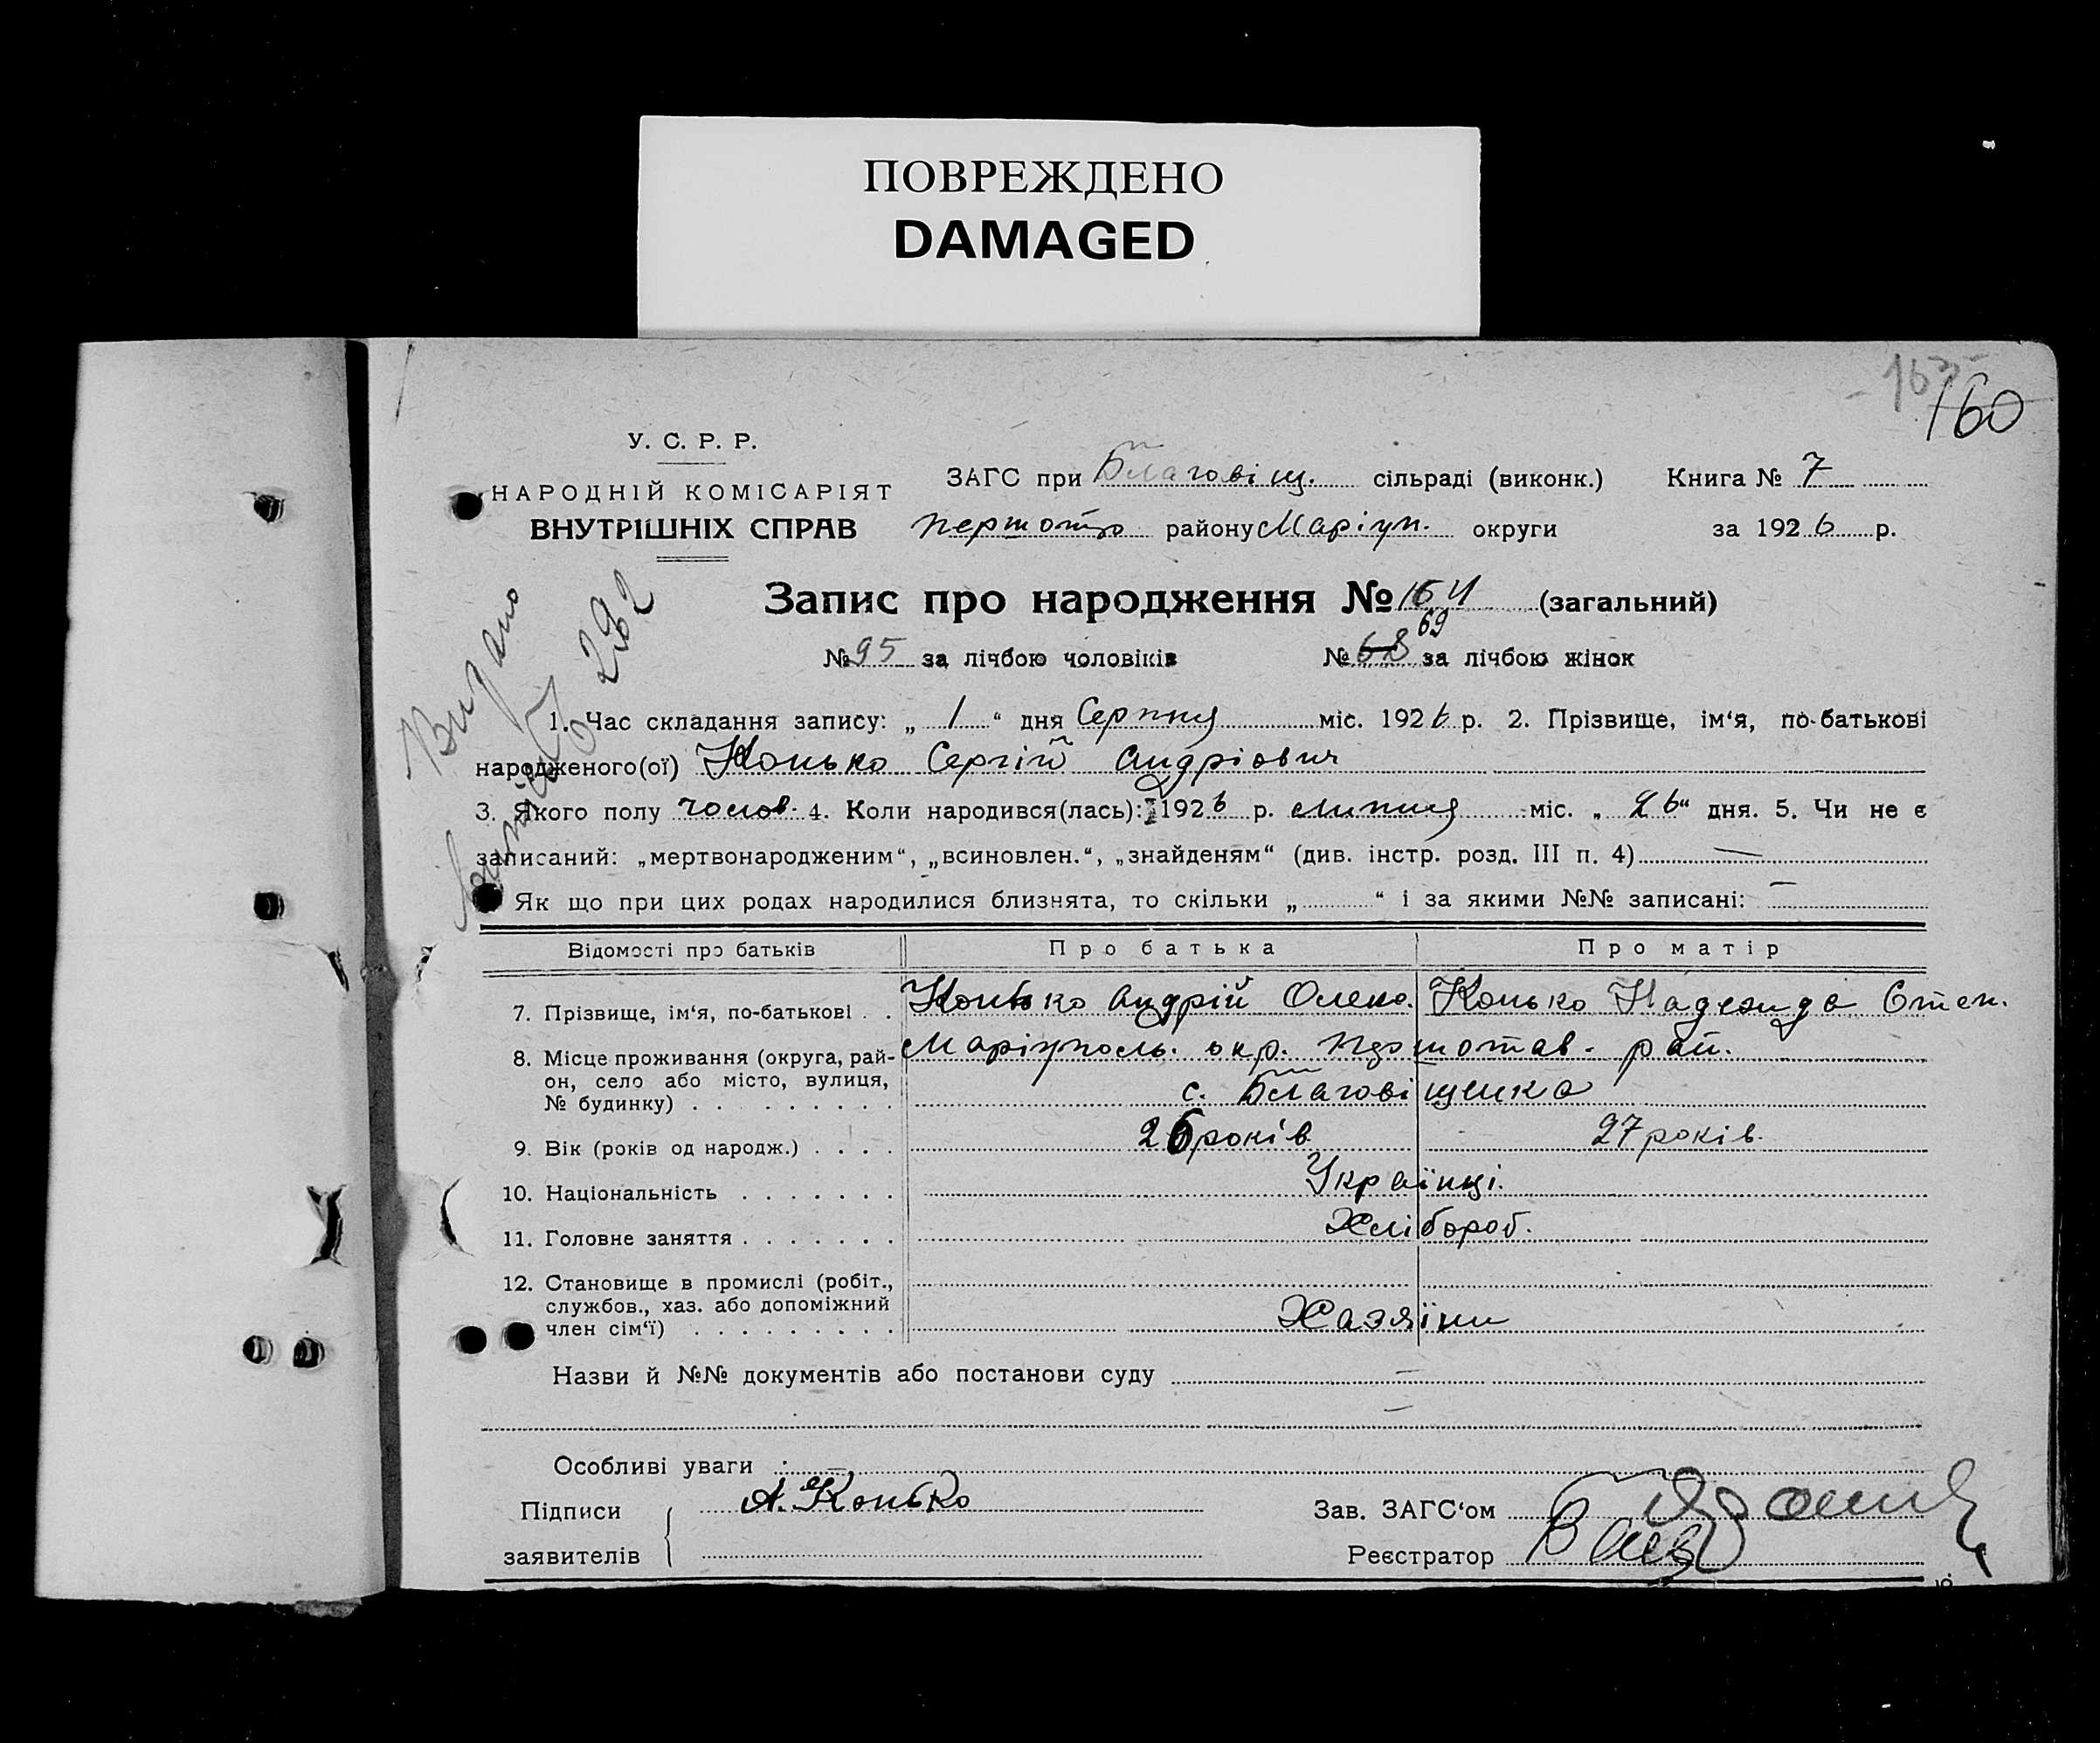 ПОВРЕЖДЕНО
DAMAGED
160
У. С. Р. Р.
НАРОДНІЙ КОМІСАРІЯТ
ВНУТРІШНІХ СПРАВ
ЗАГС при Благовіщ. сільраді (виконк.) Книга № 7
району Маріуп. округи за 1926 р.
Запис про народження № 164 (загальний)
69
№ 95 за лічбою чоловіків № 68 за лічбою жінок
Видано
282
1. Час складання запису: „ 1 “ дня Серпня міс. 1926 р. 2. Прізвище, ім‘я, по-батькові
народженого(ої) Конько Сергій Андріович
3. Якого полу чолов. 4. Коли народився(лась): 1926 р. липня міс. „ 26 “ дня. 5. Чи не є
записаний: „мертвонародженим“, „всиновлен.“, „знайденям“ (див. інстр. розд. III п. 4) —
Як що при цих родах народилися близнята, то скільки „ “ і за якими №№ записані: —
Відомості про батьків Про батька Про матір
7. Прізвище, ім‘я, по-батькові . . Конько Андрій Олекс. Конько Надежда Степ.
8. Місце проживання (округа, рай-
он, село або місто, вулиця,
№ будинку) . . . . . . . . .
Маріуполь. окр. рай.
с. Благовіщенка
9. Вік (років од народж.) . . . . 26 років 27 років.
10. Національність . . . . . . . Українці.
11. Головне заняття . . . . . . . Хлібороб.
12. Становище в промислі (робіт.,
службов., хаз. або допоміжний
член сім‘ї) . . . . . . . . . Хазяїни
Назви й №№ документів або постанови суду —
—
Особливі уваги : —
Підписи А. Конько Зав. ЗАГС‘ом
заявителів Реєстратор